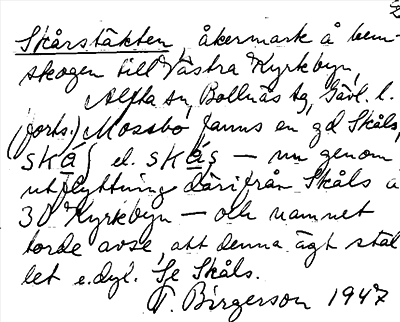 Skårstäkten, åkermark å hem-
skogen till Västra Kyrkbyn,
Alfta sn, Bollnäs tg, Gävl. l.
(forts.) Mossbo fanns en gd Skåls,
skå̀s el. skå̀s — nu genom
utflyttning därifrån Skåls å
30 Kyrkbyn — och namnet
torde avse, att denna ägt stäl
let e.dyl. Se Skåls.
T. Birgerson 1947